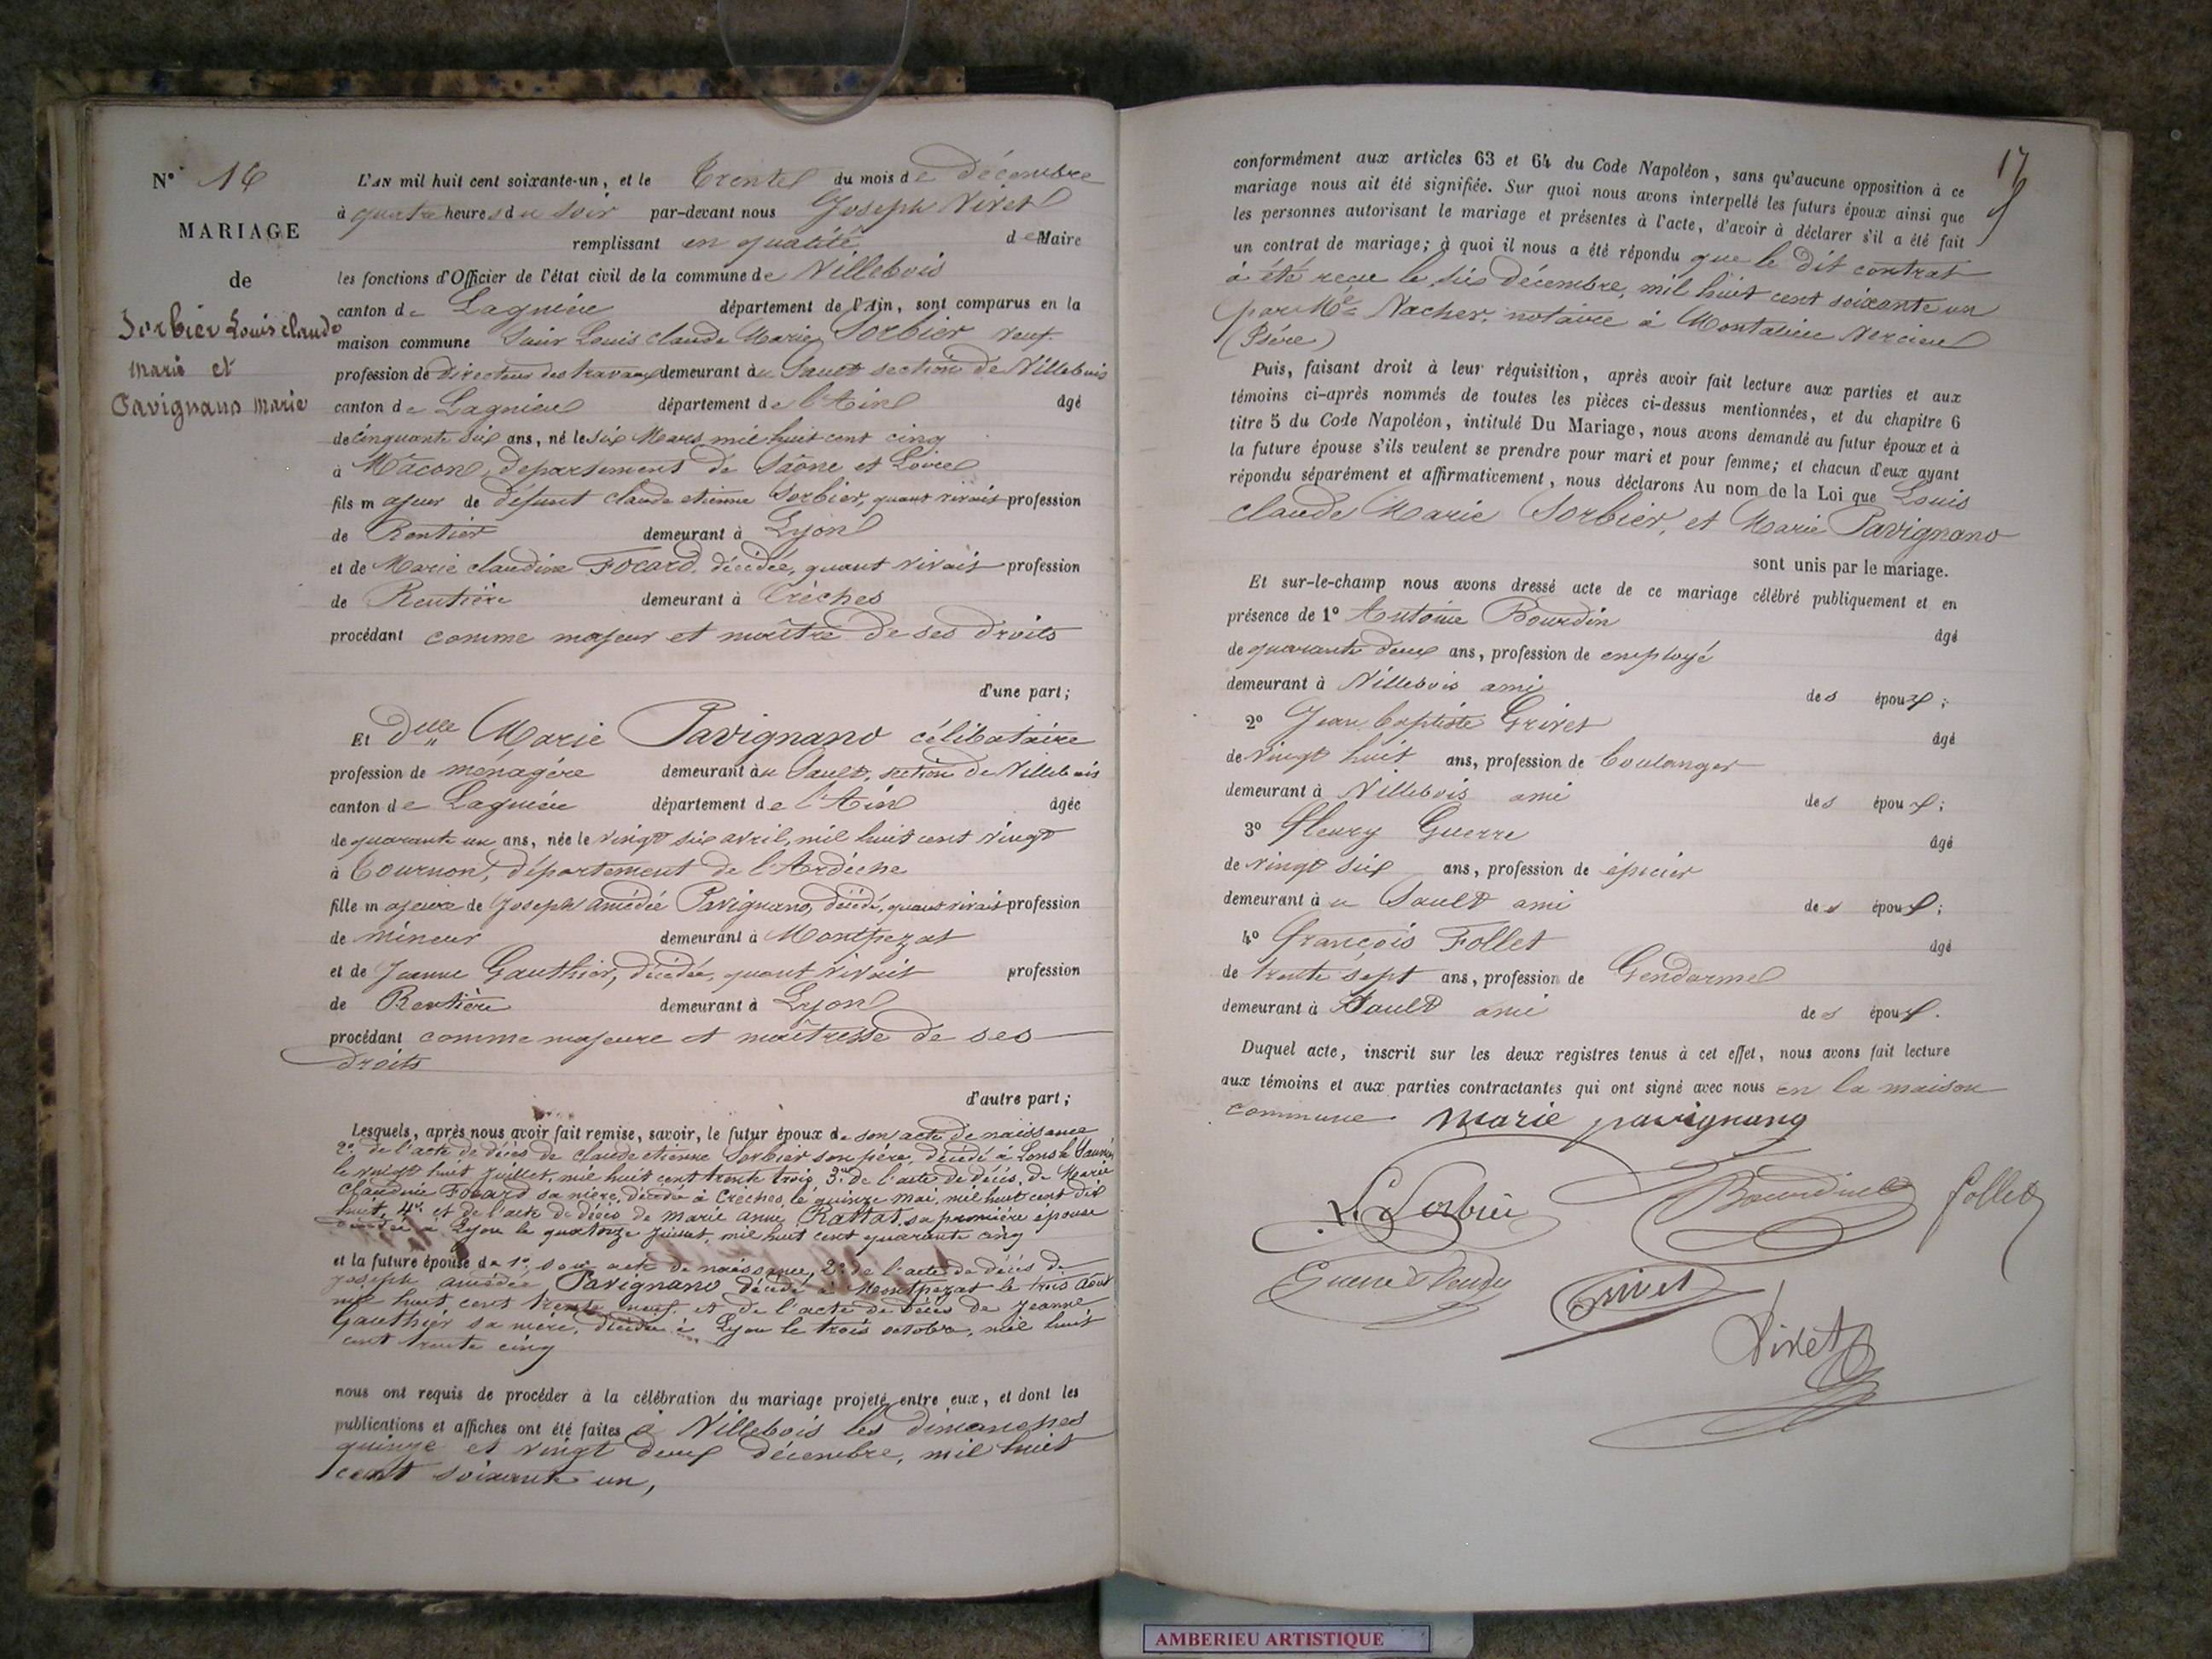 N° 16
MARIAGE
de
Sorbier Louis claude
marie et
Pavignano marie
L'AN mil huit cent soixante-un, et le Trente du mois de décembre
à quatre heures du soir par-devant nous Joseph Vivet
remplissant en qualité de Maire
les fonctions d'Officier de l'état civil de la commune de Villebois
canton de Lagnieu département de l'Ain, sont comparus en la
maison commune Louis Claude Marie Sorbier veuf
profession de directeur des travaux demeurant au Sault section de Villebois
canton de Lagnieu département de l'Ain âgé
de cinquante six ans, né le six Mars mil huit cent cinq
à Mâcon, département de Saône et Loire
fils majeur de défunt claude etienne Sorbier, quant vivait profession
de Rentier demeurant à Lyon
et de Marie claudine Focard, décédée, quant vivait profession
de Rentière demeurant à Crèches
procédant comme majeur et maître de ses droits
d'une part;
Et Delle Marie Pavignano célibataire
profession de ménagère demeurant au Sault, section de Villebois
canton de Lagnieu département de l'Ain âgée
de quarante un ans, née le vingt six avril, mil huit cent vingt
à Tournon, département de l'Ardèche
fille majeure de Joseph Amédée Pavignano, décédé, quant vivait profession
de mineur demeurant à Montpezat
et de Jeanne Gauthier, décédée, quant vivait profession
de Rentière demeurant à Lyon
procédant comme majeure et maîtresse de ses
droits
d'autre part;
Lesquels, après nous avoir fait remise, savoir, le futur époux de son acte de naissance
2° de l'acte de décès de claude etienne Sorbier son père, décédé à Lons le Saunier
le vingt huit Juillet, mil huit cent trente trois, 3° de l'acte de décès, de Marie
Claudine Focard sa mère, décédée à Crèches, le quinze mai, mil huit cent dix
huit, 4° et de l'acte de décès de marie anne Rattat, sa première épouse
décédée à Lyon le quatorze Juillet, mil huit cent quarante cinq
et la future épouse de 1° son acte de naissance, 2° de l'acte de décès de
Joseph amédée Pavignano décédé à Montpezat le trois Août
mil huit cent trente neuf, et de l'acte de décès de Jeanne
Gauthier sa mère, décédée à Lyon le trois octobre, mil huit
cent trente cinq
nous ont requis de procéder à la célébration du mariage projeté entre eux, et dont les
publications et affiches ont été faites à Villebois les dimanches
quinze et vingt deux décembre, mil huit
cent soixante un,
17
conformément aux articles 63 et 64 du Code Napoléon, sans qu'aucune opposition à ce
mariage nous ait été signifiée. Sur quoi nous avons interpellé les futurs époux ainsi que
les personnes autorisant le mariage et présentes à l'acte, d'avoir à déclarer s'il a été fait
un contrat de mariage; à quoi il nous a été répondu que le dit contrat
à été reçu le six décembre, mil huit cent soixante un
par Me Nacher, notaire à Montalieu Vercieu
(Isère)
Puis, faisant droit à leur réquisition, après avoir fait lecture aux parties et aux
témoins ci-après nommés de toutes les pièces ci-dessus mentionnées, et du chapitre 6
titre 5 du Code Napoléon, intitulé Du Mariage, nous avons demandé au futur époux et à
la future épouse s'ils veulent se prendre pour mari et pour femme; et chacun d'eux ayant
répondu séparément et affirmativement, nous déclarons Au nom de la Loi que Louis
Claude Marie Sorbier, et Marie Pavignano
sont unis par le mariage.
Et sur-le-champ nous avons dressé acte de ce mariage célébré publiquement et en
présence de 1° Antoine Bourdin âgé
de quarante deux ans, profession de employé
demeurant à Villebois ami des époux;
2° Jean baptiste Grivet âgé
de vingt huit ans, profession de boulanger
demeurant à Villebois ami des époux;
3° fleury Guerre âgé
de vingt six ans, profession de épicier
demeurant au Sault ami des époux;
4° françois Follet âgé
de trente sept ans, profession de Gendarme
demeurant à Sault ami des époux.
Duquel acte, inscrit sur les deux registres tenus à cet effet, nous avons fait lecture
aux témoins et aux parties contractantes qui ont signé avec nous en la maison
commune marie pavignano
L. Sorbier Bourdin follet
Guerre fleury Grivet
Vivet
AMBERIEU ARTISTIQUE